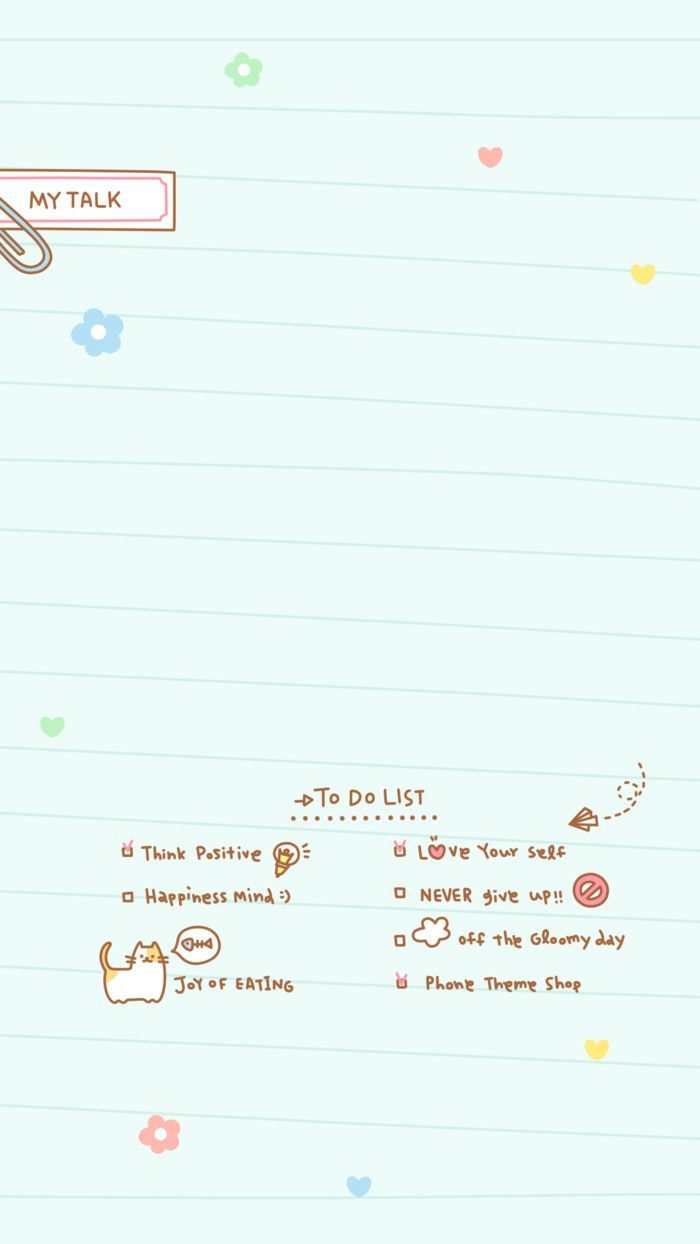 MY TALK
TO DO LIST
Think Positive
Happiness Mind :)
JOY OF EATING
Love Your self
NEVER give up!!
off the Gloomy day
Phone Theme Shop